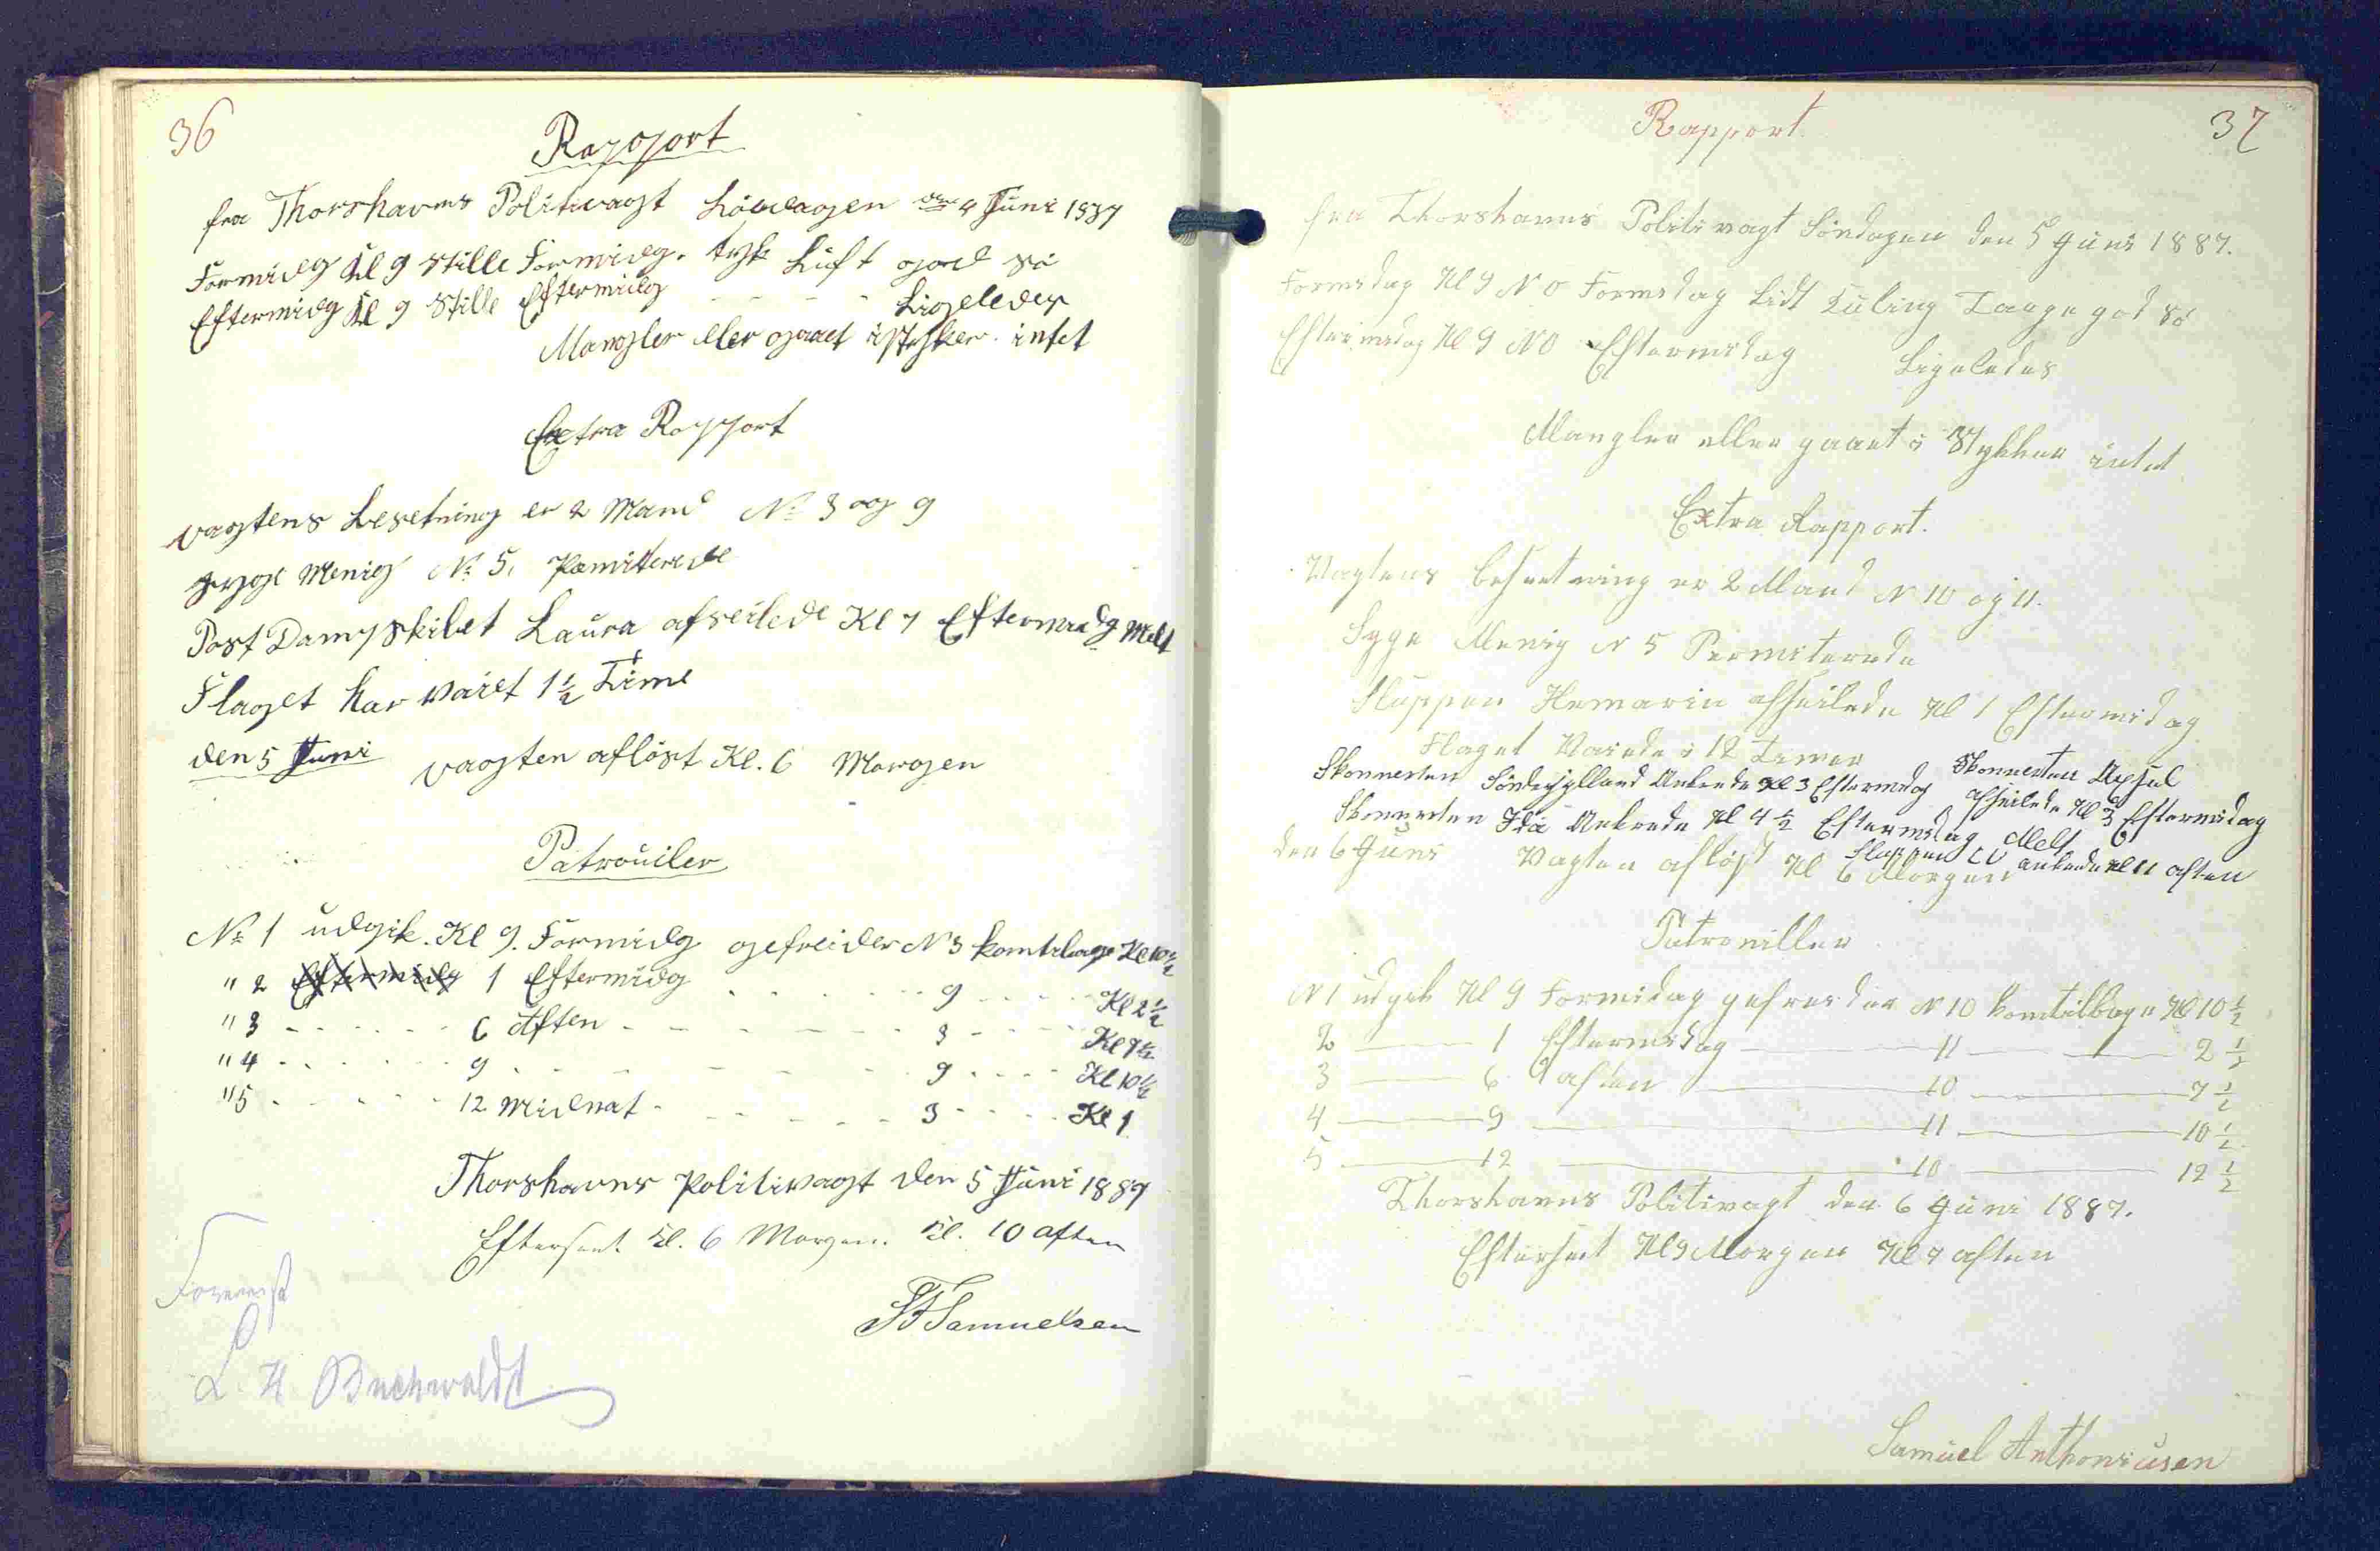 36
Rapport
fra Thorshavns Politivagt Löverdagen den 4 Juni 1887
Formidg Kl 9 Stille Formidg. tyk Luft god Sö
Eftermidg Kl 9 Stille Eftermidg - - - - Ligeledes
Mangler eller gaaet istykker intet
Extra Rapport
vagtens besetning er 2 Mand No 3 og 9
syge Menig No 5. Pamiterede
Post Dampskibet Laura afseilede Kl 7 Eftermidg Melt
Flaget har vaiet 1½ Time
den 5 Juni vagten aflöst Kl. 6 Morgen
Patrouiler
No 1 udgik. Kl 9. Formidg gefreider N 3 komtebage Kl 10½
" 2 Eftermidg 1 Eftermidg - - - - 9 - - - - Kl 2½
" 3 - - - - 6 Aften - - - - 3 - - - - Kl 7½
" 4 - - - - 9 - - - - 9 - - - - Kl 10½
" 5 - - - - 12 Midnat - - - - 3 - - - - Kl 1
Thorshavns Politivagt den 5 Juni 1887
Efterseet Kl. 6 Morgen. Kl. 10 aften
Samuelsen
Forevist
L. H. Buchwaldt
37
Rapport.
fra Thorshavns Politivagt Söndagen den 5 Juni 1887.
Formidag Kl 9 N O Formidag Lidt Kuling Taage god Sö
Eftermidag Kl 9 N O Eftermidag Ligeledes
Mangler eller gaaet i Stykker intet
Extra Rapport.
Vagtens besætning er 2 Mand N 10 og 11.
Syge Menig N 5 Permiterede
Sluppen Hemarin afseilede Kl 1 Eftermidag
Flaget Vaiede i 12 Timer
Skonnerten Sönderjylland Ankrede Kl 3 Eftermidag Skonnerten Axsul afseilede Kl 3 Eftermidag
Skonnerten Ida Ankrede Kl 4½ Eftermidag Melt
Sluppen ankrede Kl 11 aften
den 6 Juni Vagten aflöst Kl 6 Morgen
Patrouiller
N 1 udgik Kl 9 Formidag gefreider N 10 komtilbage Kl 10½
2 — 1 Eftermidag — 11 — 2½
3 — 6 aften — 10 — 7½
4 — 9 — 11 — 10½
5 — 12 — 10 — 12½
Thorshavns Politivagt den 6 Juni 1887.
Efterseet Kl 9 Morgen Kl 7 aften
Samuel Anthoniusen